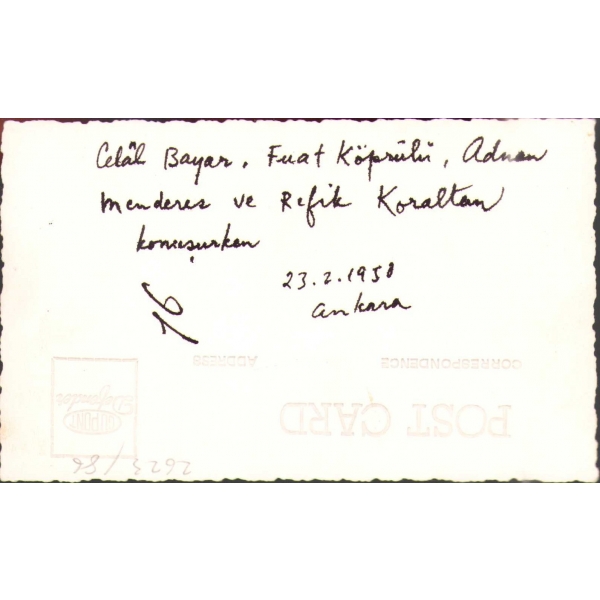 Celâl Bayar, Fuat Köprülü, Adnan
Menderes ve Refik Koraltan
konuşurken
23.2.1950
Ankara
16
CORRESPONDENCE
ADDRESS
POST CARD
DUPONT
Defender
2623/86